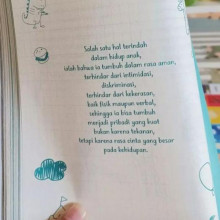 Salah satu hal terindah
dalam hidup anak,
ialah bahwa ia tumbuh dalam rasa aman,
terhindar dari intimidasi,
diskriminasi,
terhindar dari kekerasan,
baik fisik maupun verbal,
sehingga ia bisa tumbuh
menjadi pribadi yang kuat
bukan karena tekanan,
tetapi karena rasa cinta yang besar
pada kehidupan.